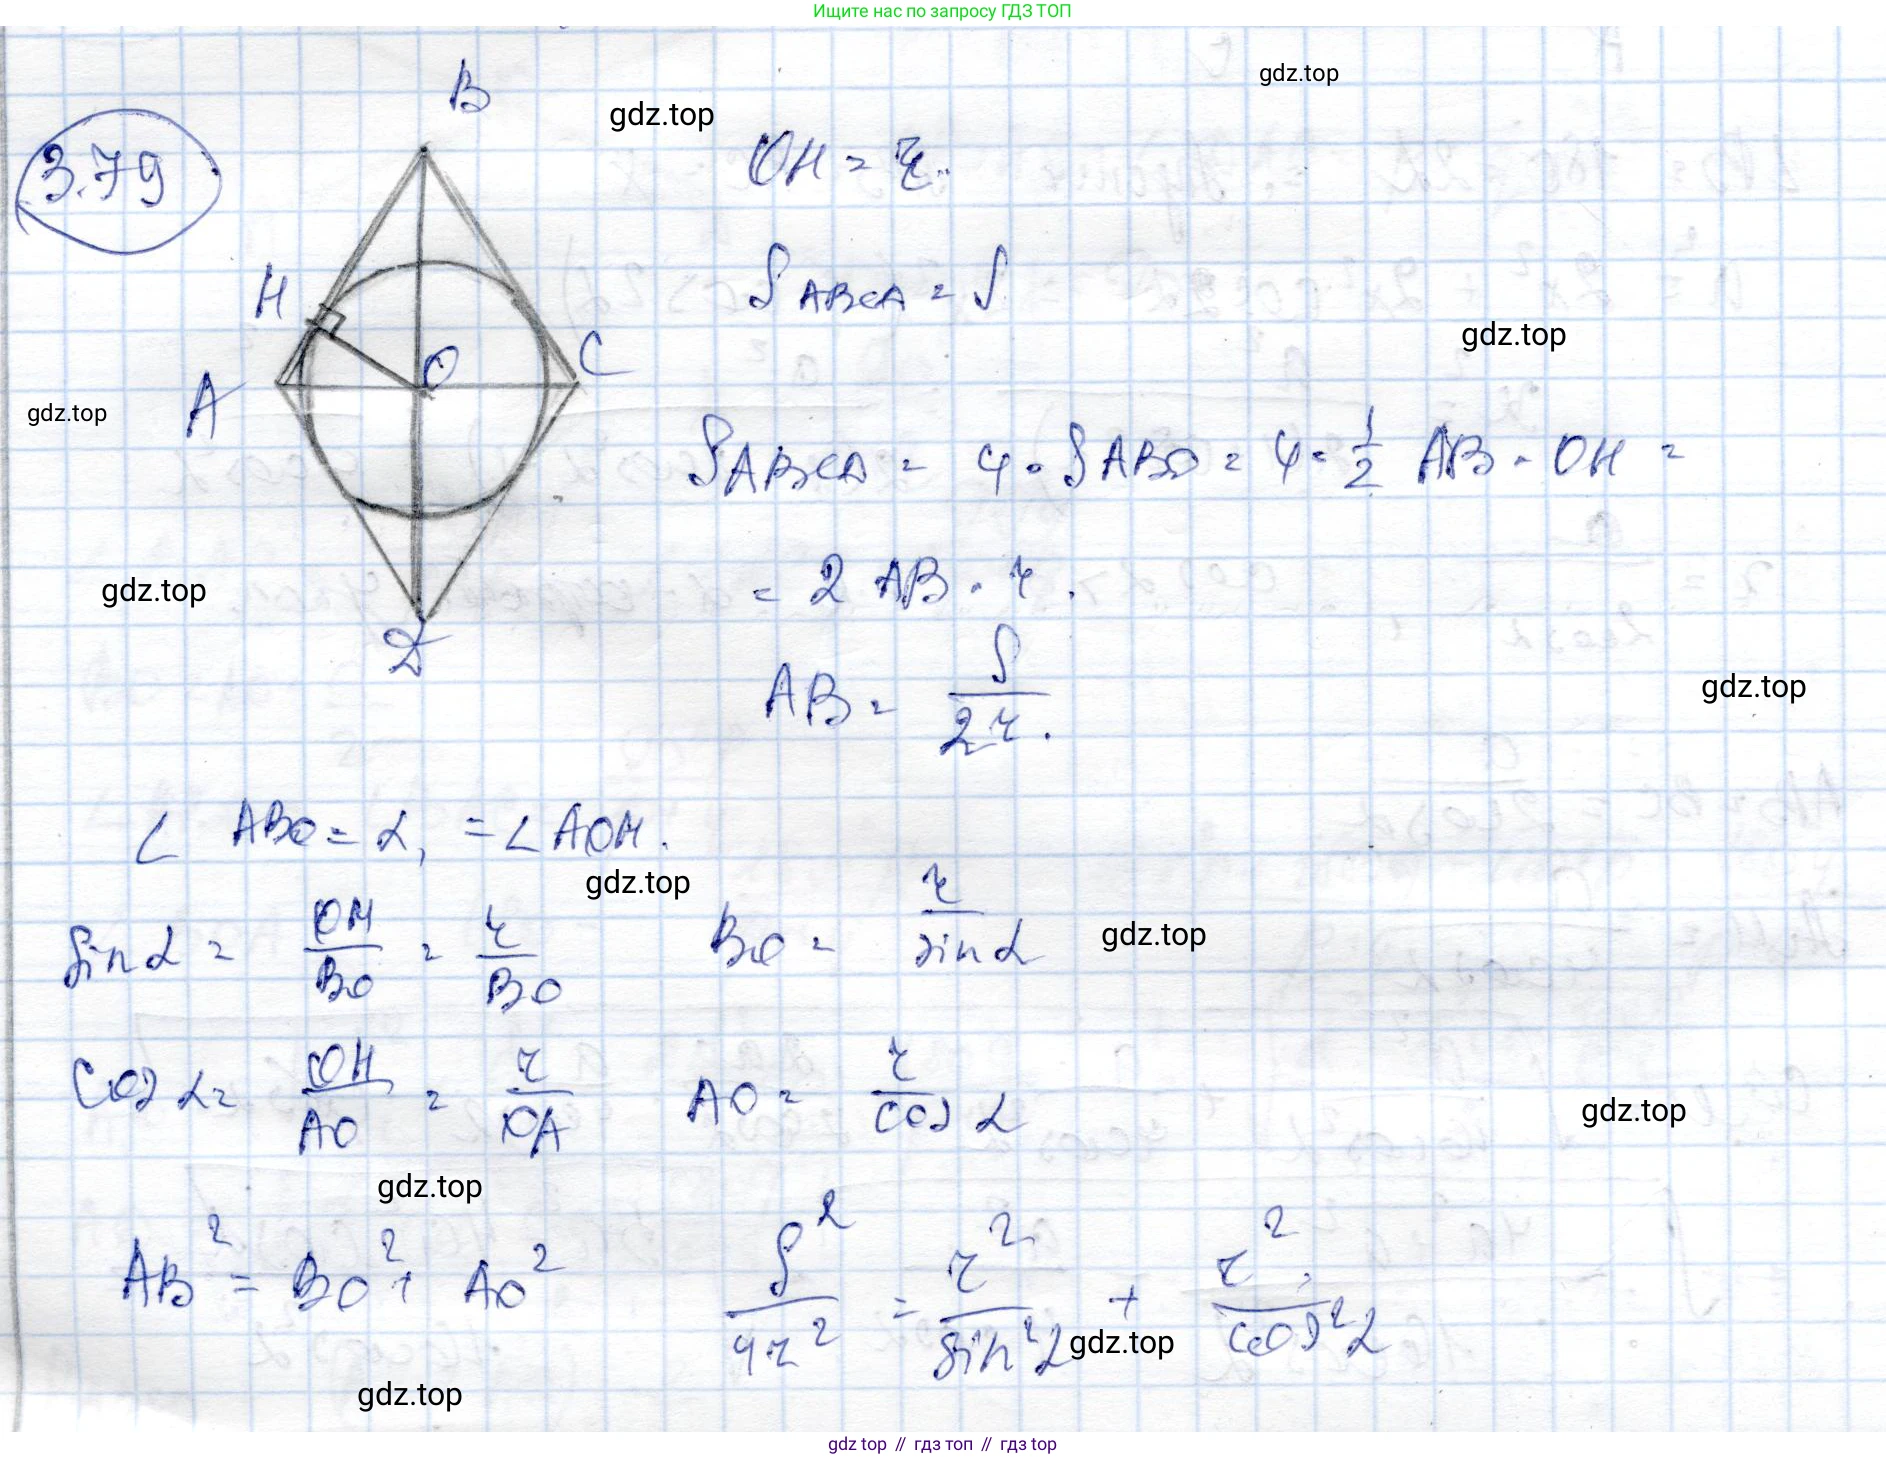 Ищите нас по запросу ГДЗ ТОП
gdz.top
B
gdz.top
3.79
OH = r.
H
S ABCD = S
gdz.top
O
C
A
gdz.top
S ABCD = 4 · S ABO = 4 · 1/2 AB · OH =
gdz.top
= 2 AB · r.
D
AB = S/2r.
gdz.top
∠ ABO = α, = ∠ AOH.
gdz.top
sin α = OH/BO = r/BO BO = r/sin α
gdz.top
cos α = OH/AO = r/OA AO = r/cos α
gdz.top
gdz.top
AB² = BO² + AO² S²/4r² = r²/sin²α + r²/cos²α
gdz.top
gdz.top
gdz top // гдз топ // гдз top